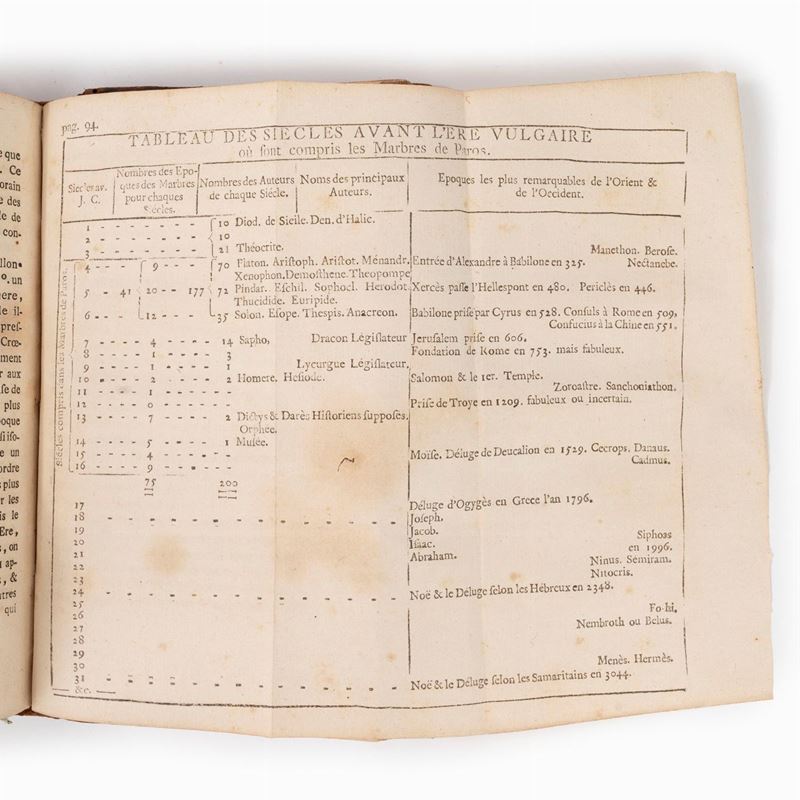 pag. 94.
TABLEAU DES SIECLES AVANT L'ERE VULGAIRE
où sont compris les Marbres de Paros.
Siecles av. J. C.
Nombres des Epoques des Marbres pour chaques Siécles.
Nombres des Auteurs de chaque Siécle.
Noms des principaux Auteurs.
Epoques les plus remarquables de l'Orient & de l'Occident.
Siécles compris dans les Marbres de Paros.
1 - - - - - - 10 Diod. de Sicile. Den. d'Halic.
2 - - - - - - 10
3 - - - - - - 21 Théocrite. Manethon. Berose.
4 - - 9 - - 70 Platon. Aristoph. Aristot. Ménandr. Entrée d'Alexandre à Babilone en 325. Nectanebe.
Xenophon. Demosthene. Theopompe
5 - 41 20 - - 177 72 Pindar. Eschil. Sophocl. Herodot. Xercès passe l'Hellespont en 480. Periclès en 446.
Thucidide. Euripide.
6 - - 12 - - 35 Solon. Esope. Thespis. Anacreon. Babilone prise par Cyrus en 528. Consuls à Rome en 509,
Confucius à la Chine en 551.
7 - - 4 - - 14 Sapho, Dracon Législateur Jerusalem prise en 606.
8 - - 1 - - 3 Fondation de Rome en 753. mais fabuleux.
9 - - 1 - - 1 Lycurgue Législateur.
10 - - 2 - - 2 Homere. Hesiode. Salomon & le 1er. Temple.
Zoroastre. Sanchoniathon.
11 - - 1 - -
12 - - 0 - - Prise de Troye en 1209. fabuleux ou incertain.
13 - - 7 - - 2 Dictys & Darès Historiens supposés.
Orphée.
14 - - 5 - - 1 Musée.
15 - - 4 - - Moïse. Déluge de Deucalion en 1529. Cecrops. Danaus.
16 - - 9 - - Cadmus.
75 200
17 Déluge d'Ogygès en Grece l'an 1796.
18 - - - - - - Joseph.
19 Jacob. Siphoas
20 Isaac. en 1996.
21 Abraham. Ninus. Sémiram.
22 Nitocris.
23
24 - - - - - - Noë & le Déluge selon les Hébreux en 2348.
25
26 Fo-hi.
27 Nembroth ou Belus.
28
29
30 Menès. Hermès.
31 - - - - - - Noë & le Déluge selon les Samaritains en 3044.
&c.